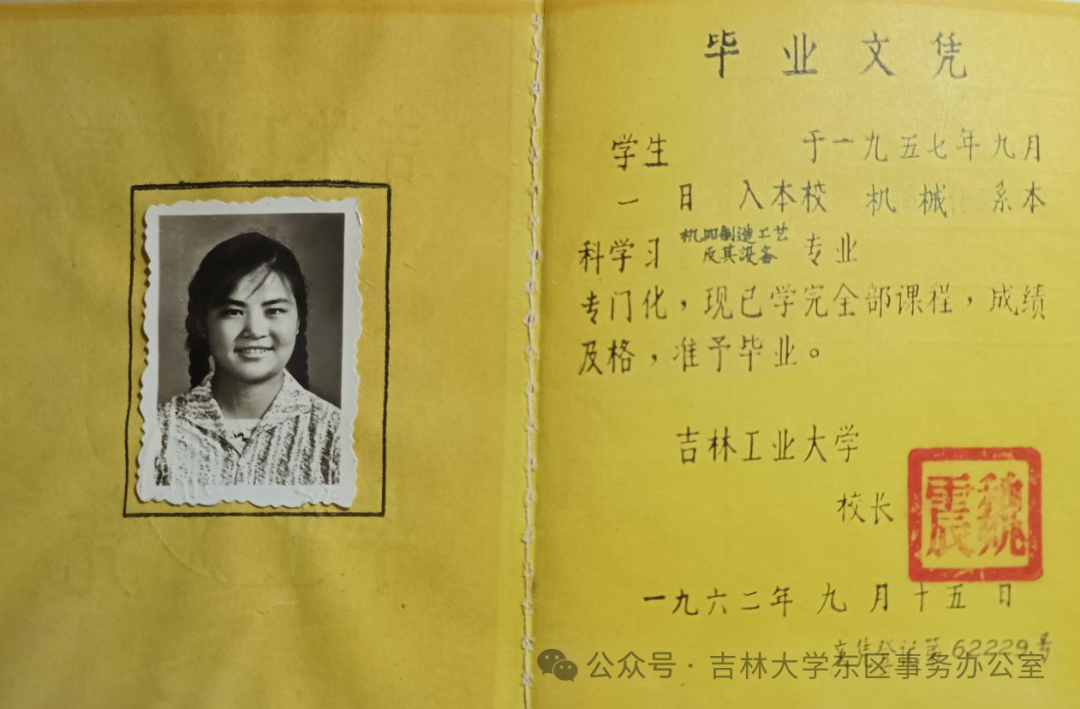 毕业文凭
学生 于一九五七年九月
一日 入本校 机械 系本
科学习 机四制造工艺及其设备 专业
专门化，现已学完全部课程，成绩
及格，准予毕业。
吉林工业大学
校长
魏震
一九六二年九月十五日
文凭登记第62229号
公众号·吉林大学东区事务办公室